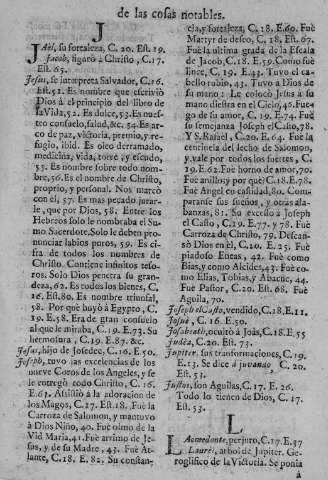 de las cosas notables.
J
JAèl, su fortaleza, C. 20. Est. 19.
Jacob, figurò à Christo, C. 17.
Est. 65.
Jesus, se interpreta Salvador, C. 16.
Est. 51. Es nombre que escrivió
Dios à el principio del libro de
la Vida, 52. Es dulce, 53. Es nuestro
consuelo, salud, &c. 54. Es arco
de paz, victoria, premio, y refugio,
ibid. Es oleo derramado,
medicina, vida, torre, y escudo,
55. Es nombre sobre todo nombre,
56. Es el nombre de Christo,
proprio, y personal. Nos marcò
con èl, 57. Es mas pecado jurarle,
que por Dios, 58. Entre los
Hebreos solo le nombraba el Sumo
Sacerdote. Solo le deben pronunciar
labios puros, 59. Es cifra
de todos los nombres de
Christo. Contiene infinitos tesoros.
Solo Dios penetra su grandeza,
62. Es todos los bienes, C.
16. Est. 80. Es nombre triunfal,
58. Por què huyò à Egypto, C.
19. E. 58. Era de gran consuelo
al que le miraba, C. 19. E. 73. Su
hermosura, C. 19. E. 87. &c.
Josas, hijo de Josedec, C. 16. E. 50.
Joseph, tuvo las excelencias de los
nueve Coros de los Angeles, y se
le entregò todo Christo, C. 16.
E. 63. Assistiò à la adoracion de
los Magos, C. 17. Est. 18. Fuè la
Carroza de Salomon, y mantuvo
à Dios Niño, 40. Fuè olmo de la
Vid Maria, 41. Fuè arrimo de Jesus,
y de su Madre, 43. Fuè Atlante,
C. 18. E. 82. Su constancia,
y fortaleza, C. 18. E. 60. Fuè
Martyr de deseo, C. 18. E. 67.
Fuè la ultima grada de la Escala
de Jacob, C. 18. E. 59. Como fuè
lince, C. 19. E. 43. Tuvo el cabello
rubio, 43. Tuvo à Dios de
su mano: Le colocò Jesus à su
mano diestra en el Cielo, 46. Fuego
de su amor, C. 19. E. 74. Fuè
su semejanza Joseph el Casto, 78.
Y S. Rafaèl, C. 20. E. 64. Fuè la
centinela del lecho de Salomon,
y vale por todos los fuertes, C.
19. E. 62. Fuè horno de amor, 70.
Fuè anillo: y por què? C. 18. E. 78.
Fuè Angel en castidad, 80. Comparanse
sus sueños, y otras alabanzas,
81. Su excesso à Joseph
el Casto, C. 19. E. 77. y 78. Fuè
Carroza de Christo, 79. Descansò
Dios en èl, C. 20. E. 25. Fuè
piadoso Eneas, 42. Fuè como
Bias, y como Alcides, 43. Fuè como
Elias, Tobias, y Abacuc, 44.
Fuè Pastor, C. 20. Est. 68. Fuè
Aguila, 70.
Joseph el Casto, vendido, C. 18. E. 11.
Josuè, C. 16. E. 50.
Josabeath, ocultò à Joàs, C. 18. E. 55
Judèa, C. 20. Est. 73.
Jupiter, sus transformaciones, C. 19.
E. 13. Se dice à juvando, C. 20.
Est. 51.
Justos, son Aguilas, C. 17. E. 26.
Todo lo tienen de Dios, C. 17.
Est. 53.
L
LAomedonte, perjuro, C. 17. E. 37
Laurèl, arbol de Jupiter. Geroglifico
de la Victoria. Se ponia
à